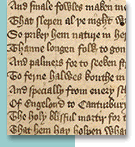 And smale fowles maken
That slepen al the nyght
So priketh hem nature in
Thanne longen folk to gon
And palmeres for to seken
To ferne halwes kowthe
And specially from every
Of Engelond to Caunterbury
The holy blisful martir for
That hem hath holpen whan